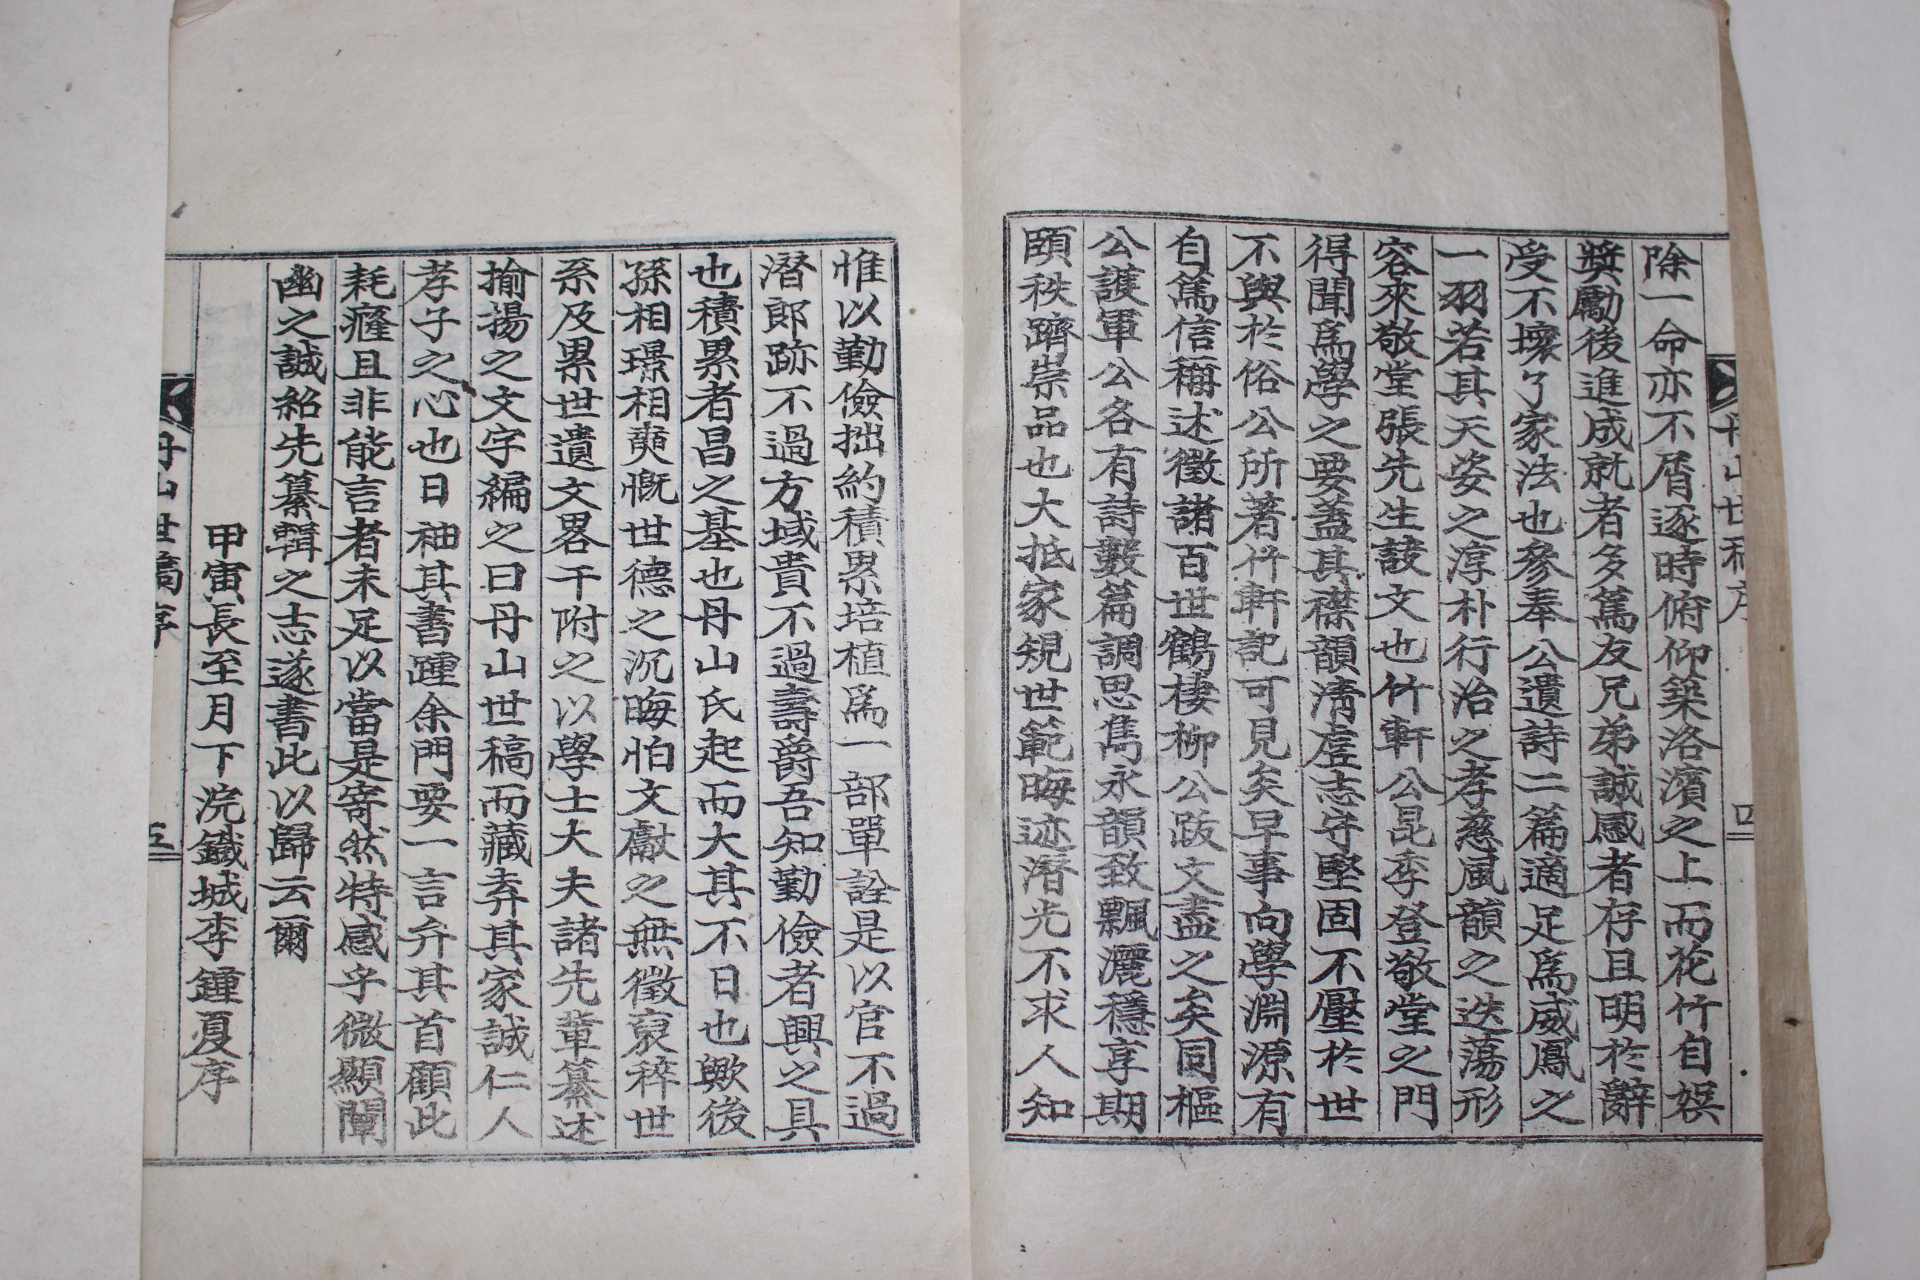 除一命亦不屑逐時俯仰築洛濱之上而花竹自娛
獎勵後進成就者多篤友兄弟誠感者存且明於辭
受不壞了家法也參奉公遺詩二篇適足爲威鳳之
一羽若其天姿之淳朴行治之孝慈風韻之迭蕩形
容來敬堂張先生誄文也竹軒公昆季登敬堂之門
得聞爲學之要盖其襟韻淸虛志守堅固不壓於世
不與於俗公所著竹軒記可見矣早事向學淵源有
自篤信稱述徵諸百世鶴棲柳公跋文盡之矣同樞
公護軍公各有詩數篇調思雋永韻致飄灑穩享期
頤秩躋崇品也大抵家規世範晦迹潛光不求人知
丹山世稿序
四
惟以勤儉拙約積累培植爲一部單詮是以官不過
潛郞跡不過方域貴不過壽爵吾知勤儉者興之具
也積累者昌之基也丹山氏起而大其不日也歟後
孫相璟相奭慨世德之沉晦怕文獻之無徵裒稡世
系及累世遺文畧干附之以學士大夫諸先輩纂述
揄揚之文字編之曰丹山世稿而藏弆其家誠仁人
孝子之心也日袖其書踵余門要一言弁其首顧此
耗癃且非能言者未足以當是寄然特感字微顯闡
幽之誠紹先纂輯之志遂書此以歸云爾
甲寅長至月下浣鐵城李鍾夏序
丹山世稿序
五